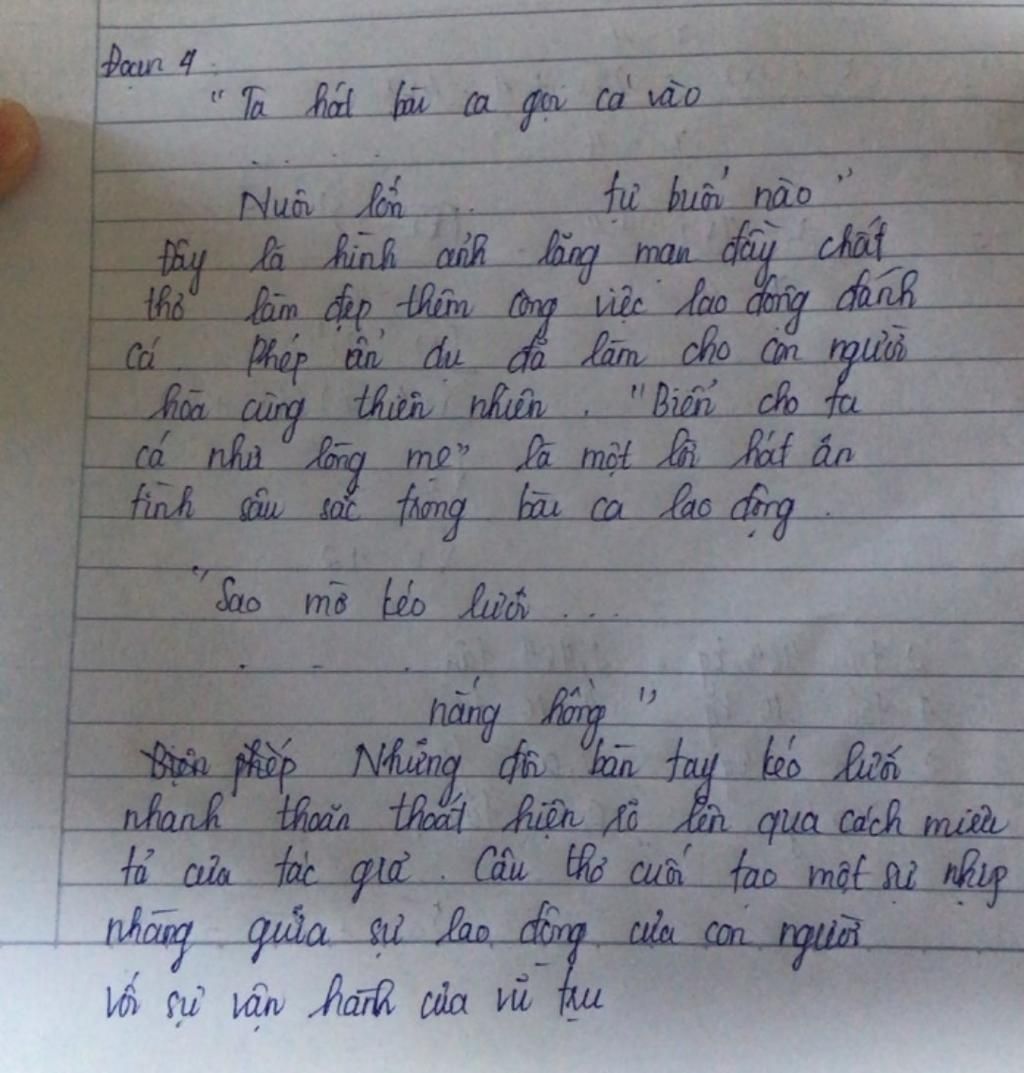 Đoạn 4.
" Ta hát bài ca gọi cá vào
. . . .
Nuôi lớn .. tự buổi nào "
Đây là hình ảnh lãng mạn đầy chất
thơ làm đẹp thêm công việc lao động đánh
cá. Phép ẩn dụ đã làm cho con người
hòa cùng thiên nhiên. "Biển cho ta
cá như lòng mẹ" là một lời hát ân
tình sâu sắc trong bài ca lao động.
"Sao mờ kéo lưới ...
. - .
nắng hồng "
Những đôi bàn tay kéo lưới
nhanh thoăn thoắt hiện rõ lên qua cách miêu
tả của tác giả. Câu thơ cuối tạo một sự nhịp
nhàng giữa sự lao động của con người
với sự vận hành của vũ trụ